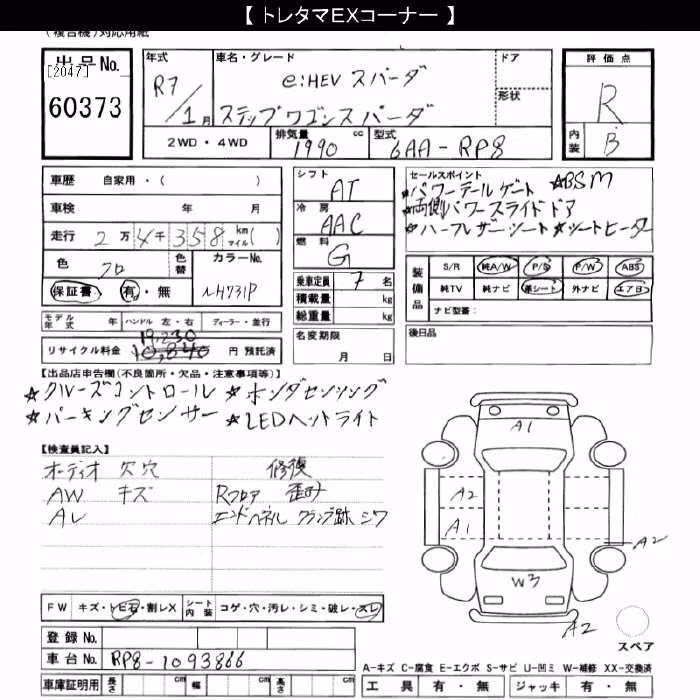 【 トレタマEXコーナー 】
(複合機)対応用紙
出品No.
[2047]
60373
年式
R7/1月
車名・グレード
e:HEV スパーダ
ステップワゴンスパーダ
ドア
形状
評価点
R
内装
B
2WD・4WD
排気量 1990 cc
型式 6AA-RP8
車歴 自家用・( )
車検 年 月
走行 2万4千358 km マイル( )
色 クロ
色替
カラーNo.
NH731P
保証書 有・無
モデル年式 年 ハンドル 左・右 ディーラー・並行
19,230
リサイクル料金 10,840 円 預託済
シフト AT
冷房 AAC
燃料 G
乗車定員 7 名
積載量 kg
総重量 kg
名変期限
月 日
セールスポイント
☆パワーテールゲート ☆BSM
☆両側パワースライドドア
☆ハーフレザーシート ☆シートヒーター
装備品
S/R 純A/W P/S P/W ABS
純TV 純ナビ 革シート 外ナビ エアB
ナビ型番:
後日品
【出品店申告欄(不良箇所・欠品・注意事項等)】
☆クルーズコントロール ☆ホンダセンシング
☆パーキングセンサー ☆LEDヘッドライト
【検査員記入】
オーディオ 欠 穴 修復
AW キズ Rフロア 歪み
AL エンドパネル クランプ跡 シワ
A1
A2
A1
A2
W3
A2
スペア
FW キズ・トビ石・割レX シート内装 コゲ・穴・汚レ・シミ・破レ・スレ
登録No.
車台No. RP8-1093866
車庫証明用 長さ cm 幅 cm 高さ cm
A-キズ C-腐食 E-エクボ S-サビ U-凹ミ W-補修 XX-交換済
工具 有・無 ジャッキ 有・無